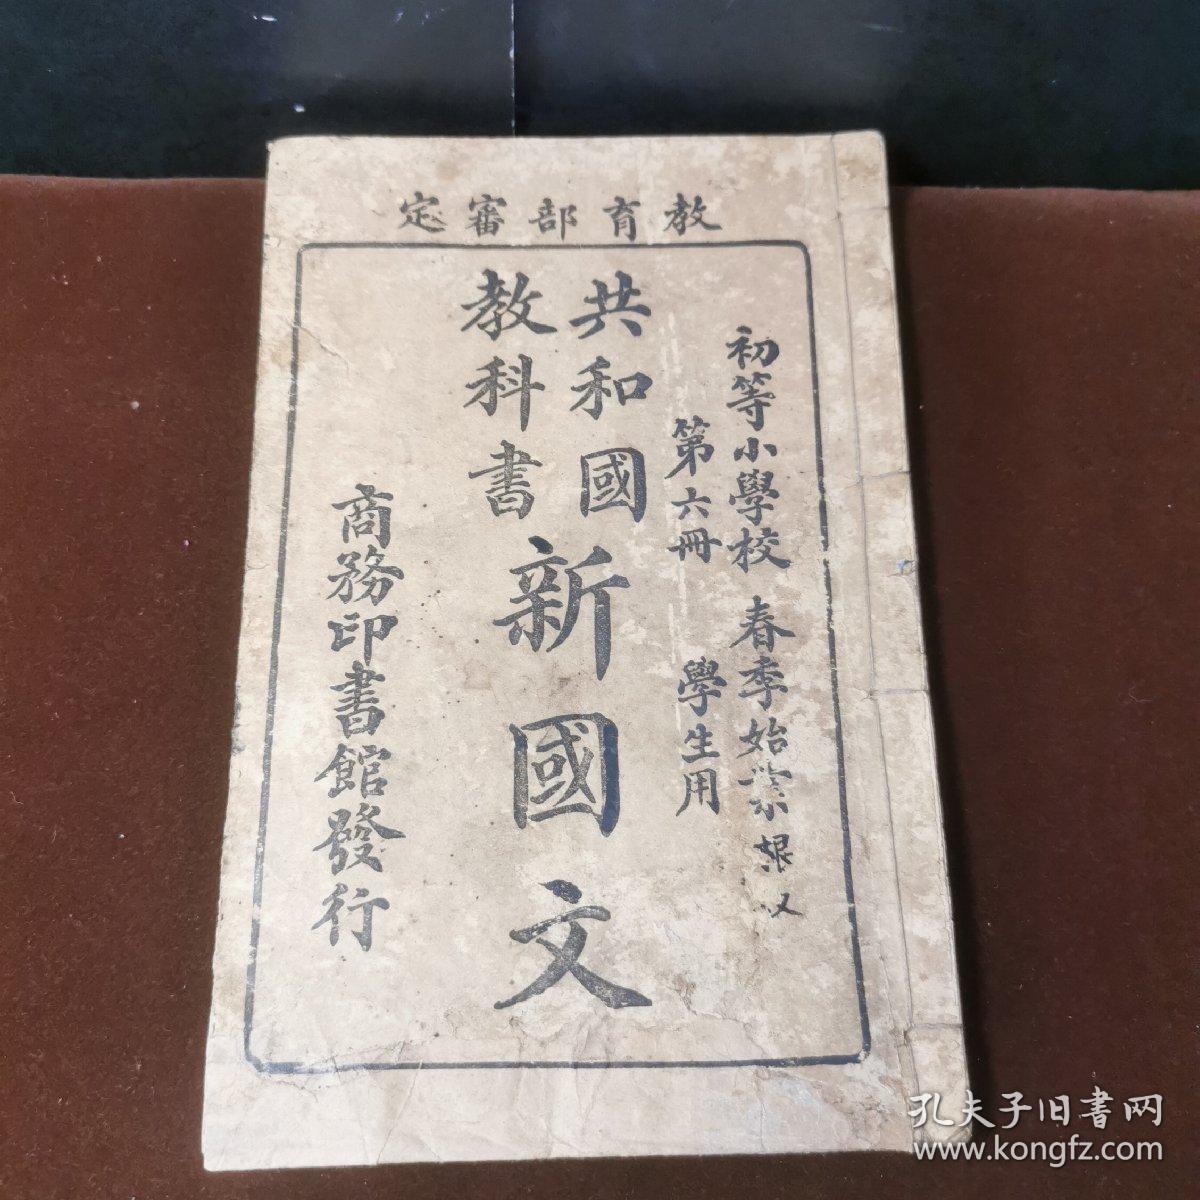 教育部審定
初等小學校 春季始業
第六冊 學生用
共和國
教科書
新國文
商務印書館發行
孔夫子旧書网
www.kongfz.com